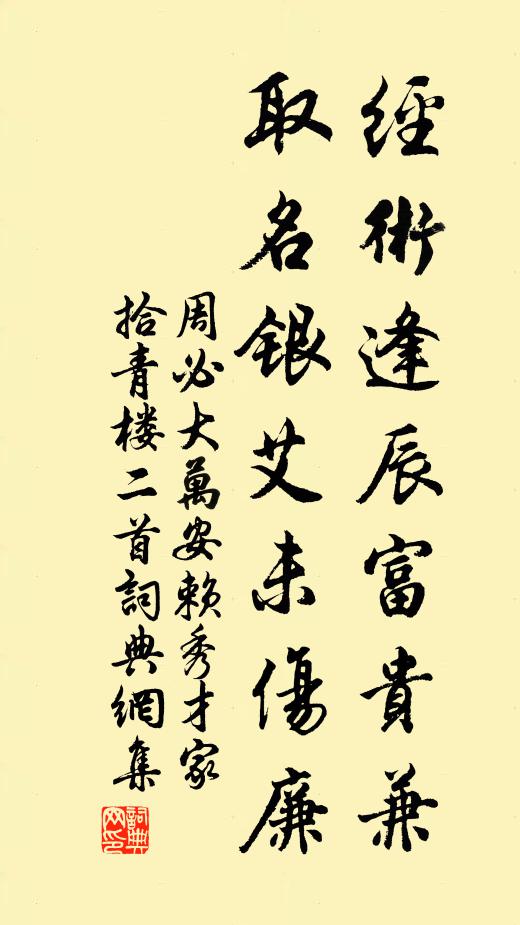 經術逢辰富貴兼
取名銀艾未傷廉
周必大萬安賴秀才家
拾青楼二首詞典網集
詞典
网印